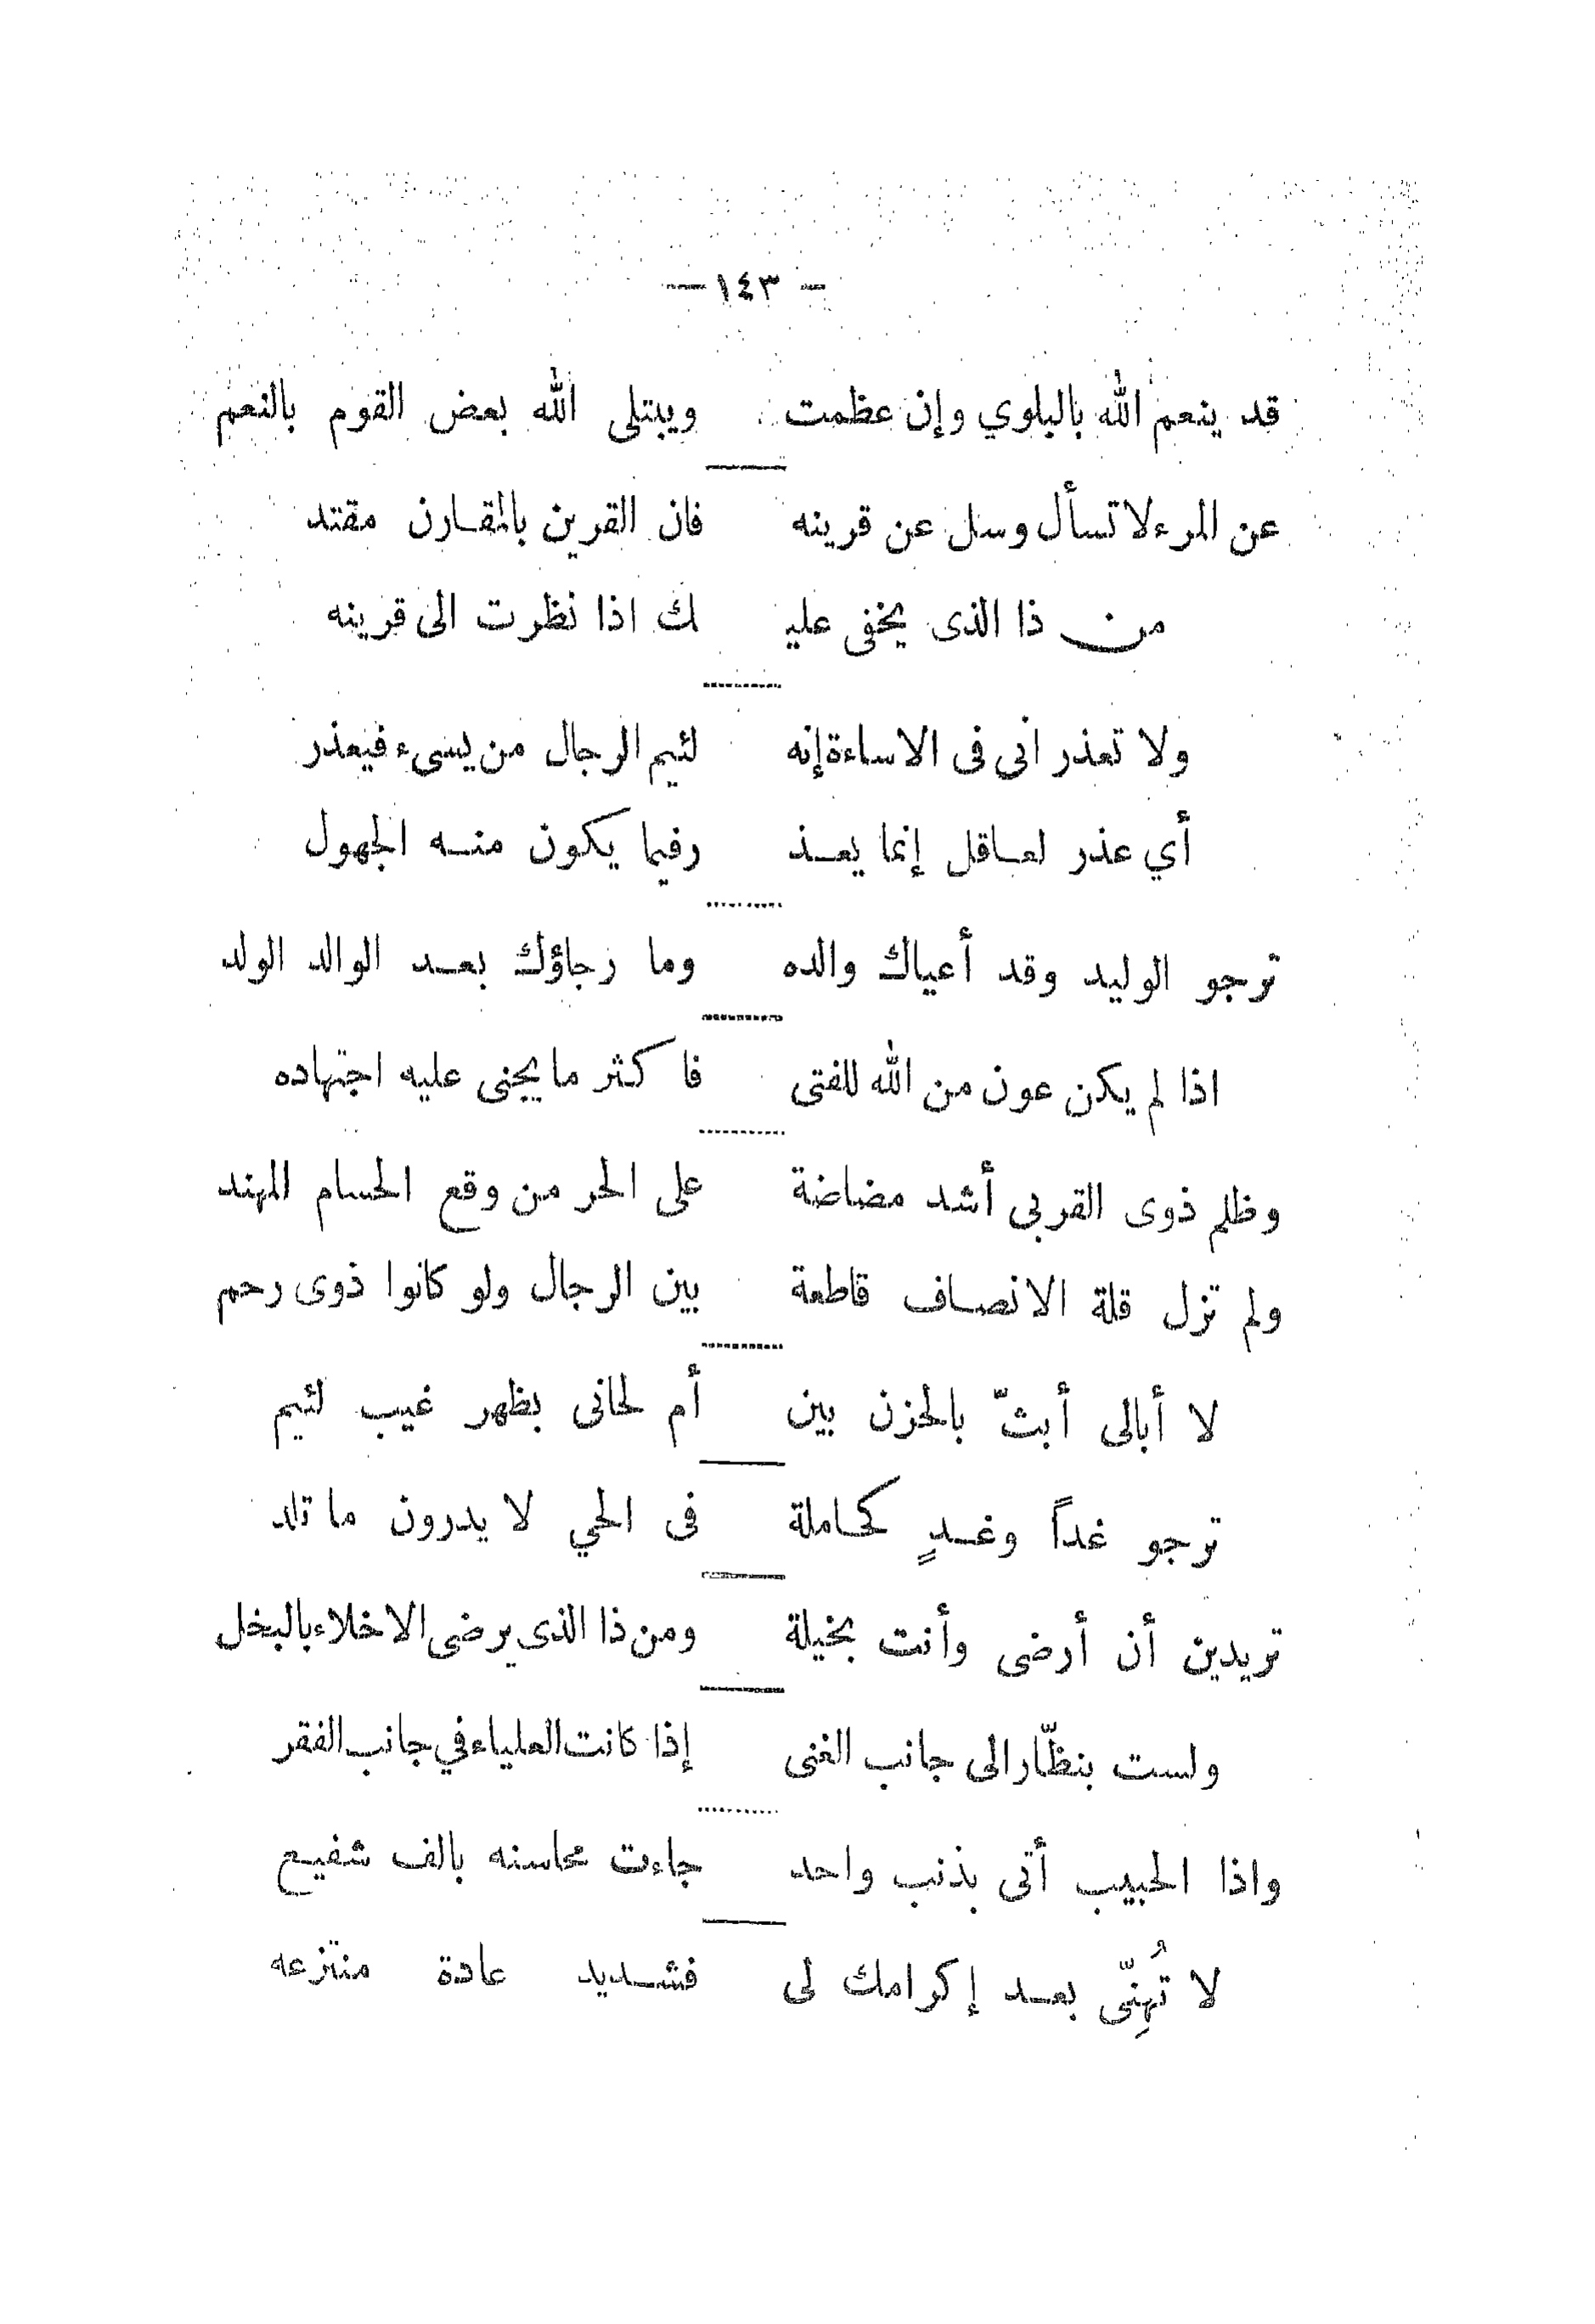 — ١٤٣ —
قد ينعم الله بالبلوي وإن عظمت ويبتلى الله بعض القوم بالنعم
عن المرء لا تسأل وسل عن قرينه فان القرين بالمقارن مقتد
من ذا الذى يخفى عليـ ـك اذا نظرت الى قرينه
ولا تعذر انى فى الاساءة إنه لئيم الرجال من يسىء فيعذر
أي عذر لعاقل إنما يعذ رفيما يكون منه الجهول
ترجو الوليد وقد أعياك والده وما رجاؤك بعد الوالد الولد
اذا لم يكن عون من الله للفتى فا كثر ما يجنى عليه اجتهاده
وظلم ذوى القربى أشد مضاضة على الحر من وقع الحسام المهند
ولم تزل قلة الانصاف قاطعة بين الرجال ولو كانوا ذوى رحم
لا أبالى أبثّ بالحزن بين أم لحانى بظهر غيب لئيم
ترجو غداً وغدٍ كحاملة فى الحي لا يدرون ما تلد
تريدين أن أرضى وأنت بخيلة ومن ذا الذى يرضى الاخلاء بالبخل
ولست بنظّار الى جانب الغنى إذا كانت العلياء في جانب الفقر
واذا الحبيب أتى بذنب واحد جاءت محاسنه بالف شفيع
لا تُهِنّى بعد إكرامك لى فشديد عادة منتزعه